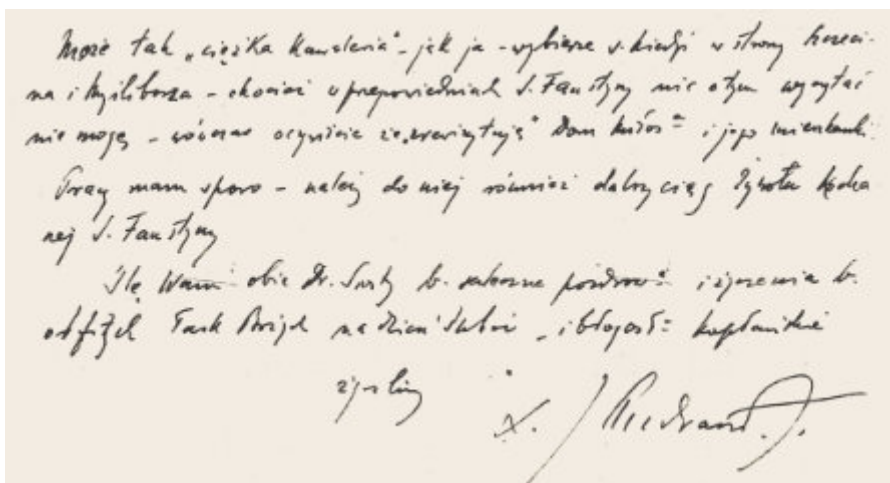 Może tak „ciężka kawaleria" - jak ja - wybierze się kiedyś w strony Szczeci-
na i Myśliborza - chociaż w przepowiedniach S. Faustyny nic o tym wyczytać
nie mogę - wówczas oczywiście "zrewizytuję" Dom Miłos= i jego mieszkanki.
Pracy mam sporo - należy do niej również dalszy ciąg Żywota Kocha
nej S. Faustyny
Ślę Wam obie Dr. Siostry b. serdeczne pozdrow= i życzenia b.
obfitych Łask Bożych na dzień ślubów - i błogosł= kapłańskie
życzliwy
X. J